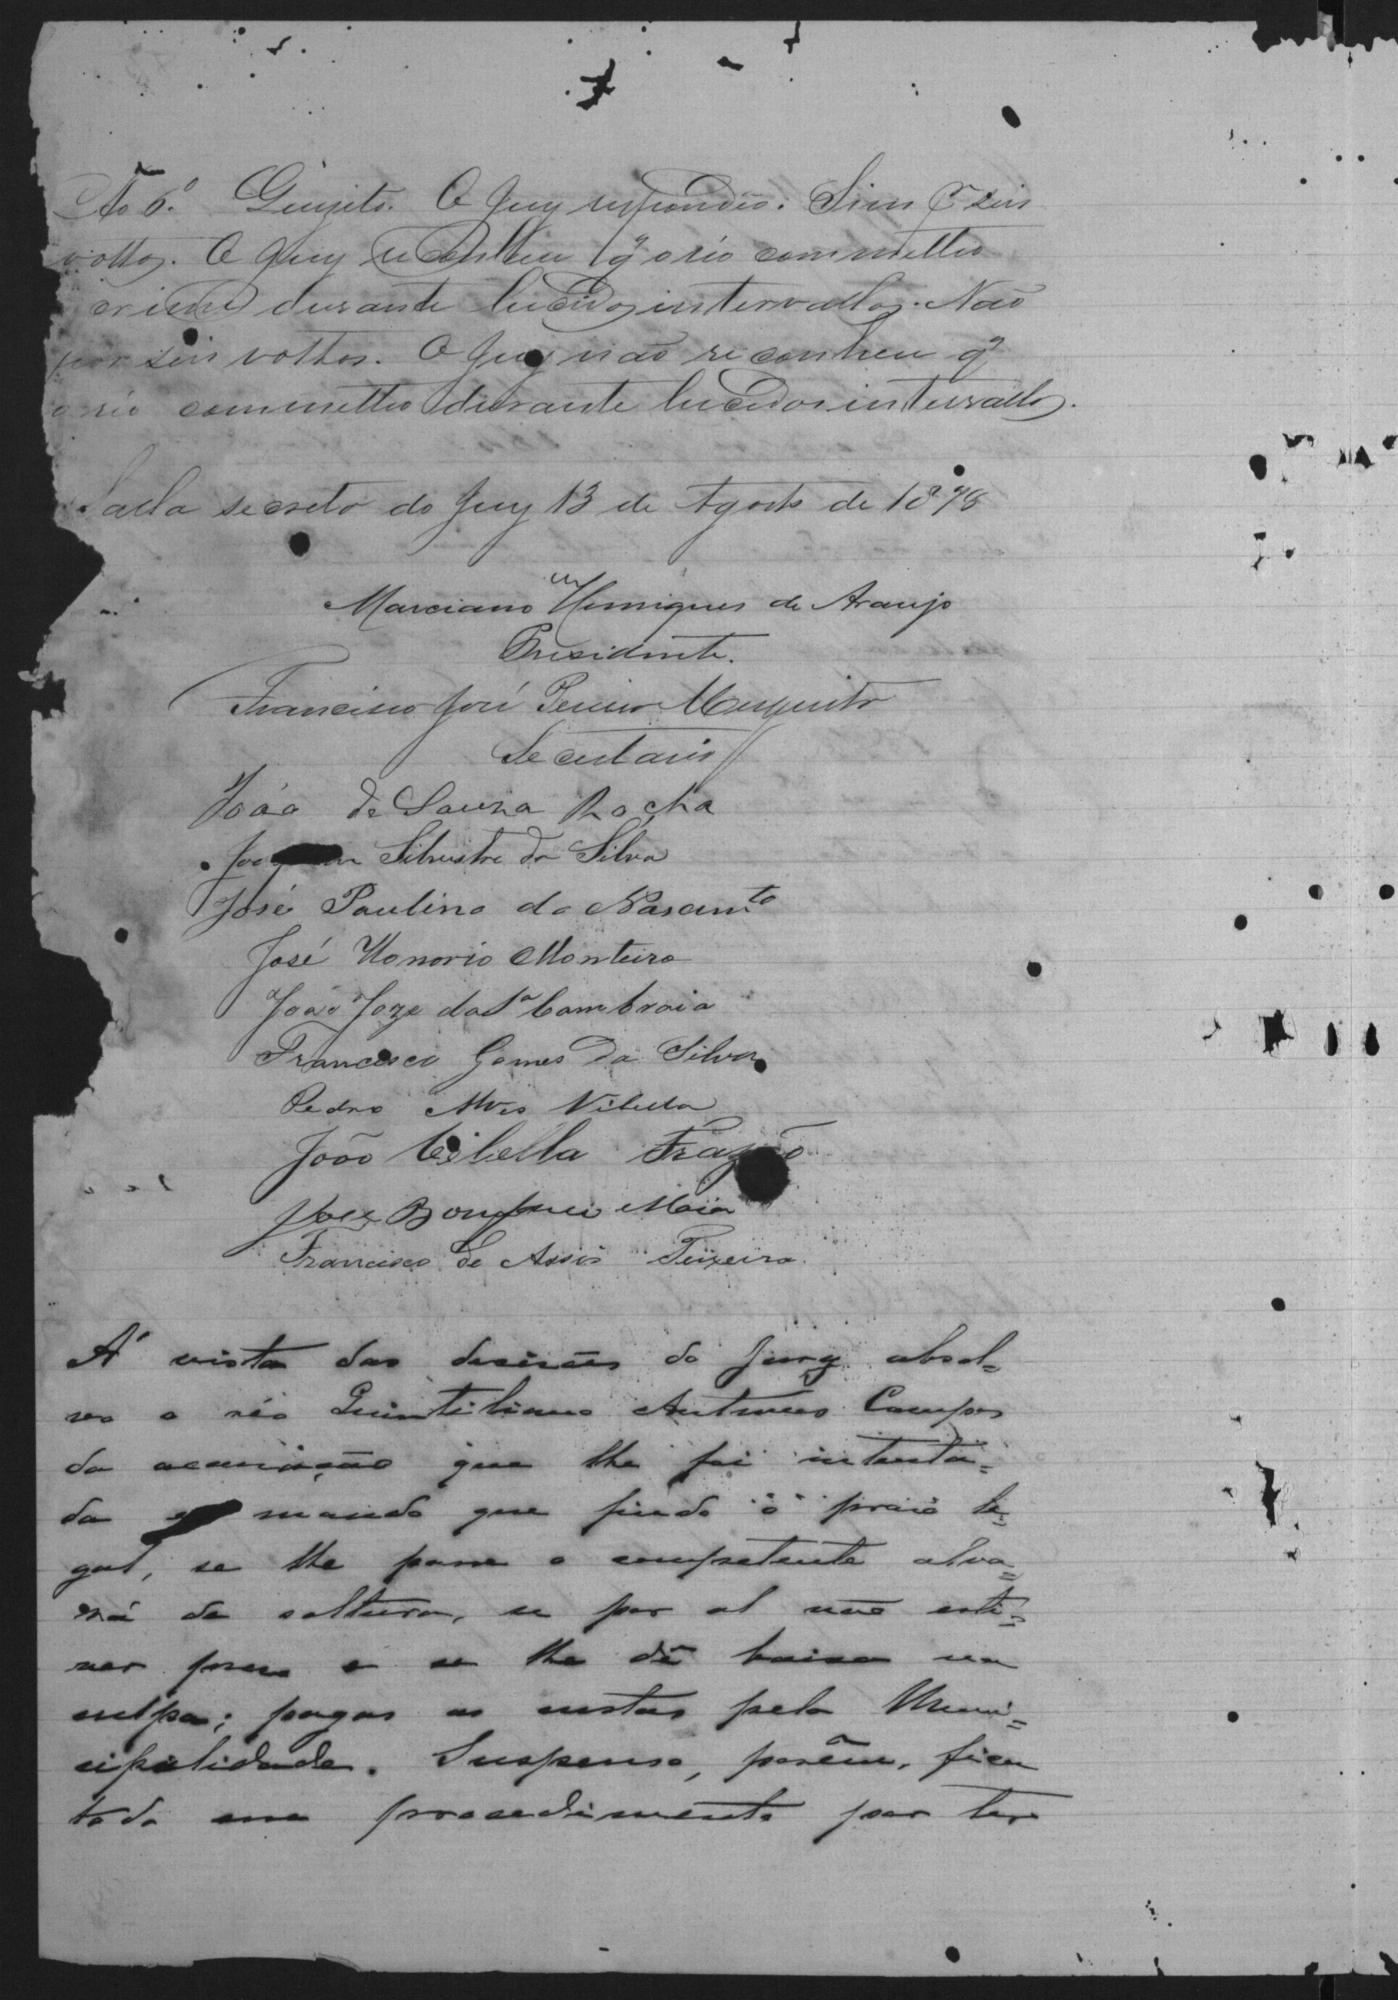 Ao 6.º Quizito. O Jury respondeo. Sim por seis
vottos. O Jury reconheceu q̃ o réo commetteo
crime durante lucidos intervallos. Não
por seis vottos. O Jury não reconheu q̃
o réo commetteo durante lucidos intervallos.
Salla secreta do Jury 13 de Agosto de 1878
Marciano Henriques de Araujo
Presidente.
Francisco José Mesquita
Secretario
João de Souza Rocha
Joaquim Silvestre da Silva
José Paulino do Nascimto
José Honorio Monteiro
João Joze da Sª Cambraia
Francisco Gomes da Silva
Pedro Alves Vilella
João Vilella Frazão
Joze Bomfim Maia
Francisco de Assis Teixeira
A' vista das decisões do Jury absol=
vo o réo Quintiliano Antunes Campos
da accusação que lhe foi intenta=
da e mando que findo o praso le=
gal, se lhe passe o competente alva=
rá de soltura, se por al não esti=
ver preso e se lhe dê baixa na
culpa; pagas as custas pela Muni=
cipalidade. Suspenso, porêm, fica
todo esse procedimento por ter